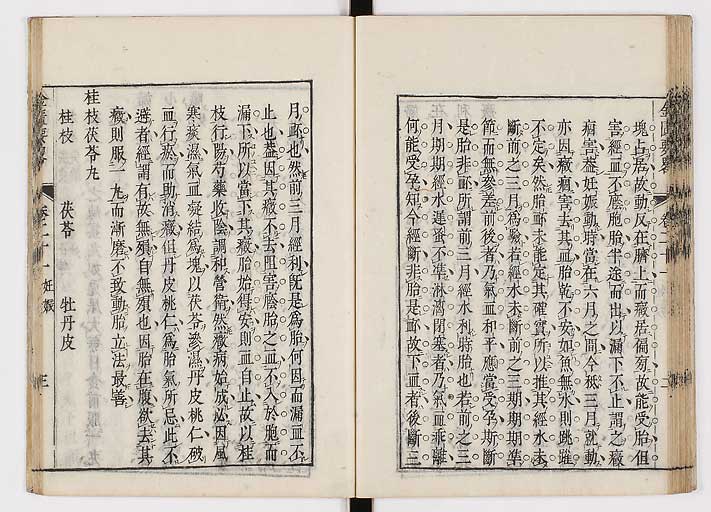 塊占居故動又在臍上而癥居偏旁故能受胎但
害經血不廕胞胎半途而出以漏下不止謂之癥
痼害蓋妊娠動時當在六月之間今衹三月就動
亦因癥痼害去其血胎乾不安如魚無水則跳雖
不定矣然胎衃未能定其確實所以推其經水未
斷前之三月爲驗若經水未斷前之三期期期準
節而無參差前後者乃氣血和平應當受孕斯斷
是胎非衃所謂前三月經水利時胎也若前之三
月期期經水遲蚤不準淋漓閉塞者乃氣血乖離
何能受孕短今經斷非胎是衃故下血者後斷三
月衃也然前三月經利旣是爲胎何因而漏血不
止也葢因其癥不去阻害廕胎之血不入於胞而
漏下所以當下其癥胎始得安則血自止故以桂
枝行陽芍藥收陰調和營衛然癥病始成必因風
寒痰濕氣血凝結爲塊以茯苓滲濕丹皮桃仁破
血行瘀而助消癥但丹皮桃仁爲胎氣所忌此不
避者經謂有故無殞自無殞也因胎在腹欲去其
癥則服一丸而漸磨不致動胎立法最善
桂枝茯苓丸
桂枝 茯苓 牡丹皮
金匱要畧 卷二十一 妊娠 三